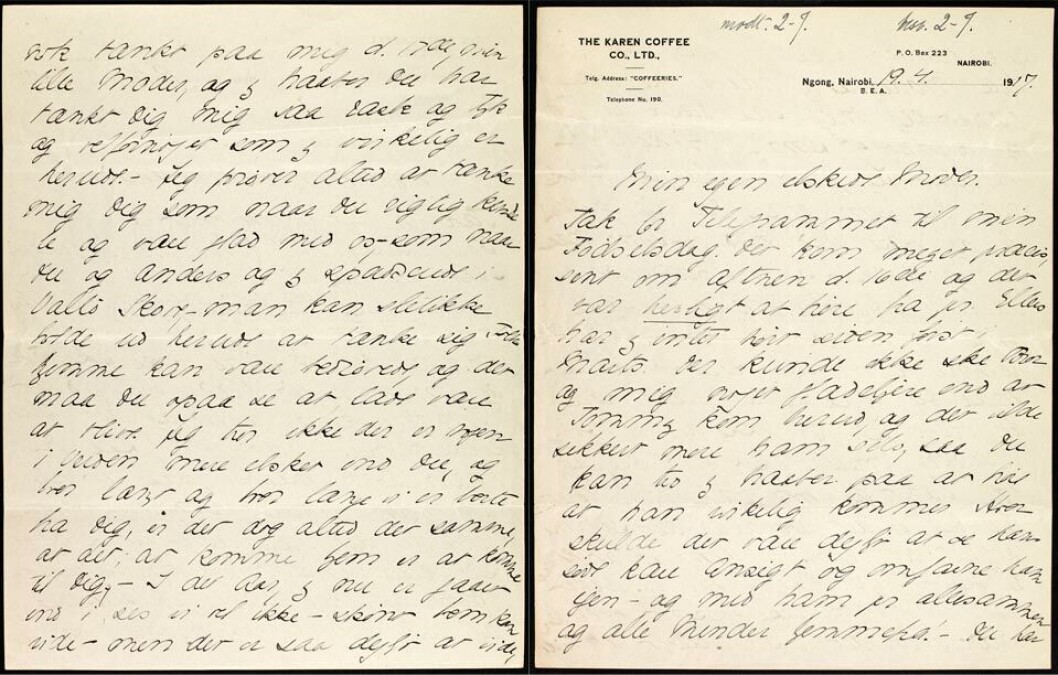 modt. 2-7.
bsv. 2-7.
THE KAREN COFFEE
CO., LTD.,
Telg. Address: "COFFEERIES."
Telephone No. 190.
P. O. Box 223
NAIROBI.
Ngong, Nairobi, 19. 4. 1917.
B. E. A.
Min egen elskede Moder.
Tak for Telegrammet til min
Fødselsdag. Det kom meget præcis,
sent om aftnen d. 16de og det
var herligt at høre fra jer. Ellers
har jeg intet hørt siden først i
Marts. Der kunde ikke ske Bror
og mig noget glædeligere end at
Tommy kom herud, og det vilde
sikkert more ham selv, saa du
kan tro jeg haaber paa at høre
at han virkelig kommer. Hvor
skulde det være dejligt at se hans
søde kære Ansigt og omfavne ham
igen - og med ham jer allesammen
og alle Minder hjemmefra! - Du har
nok tænkt paa mig d. 17de, min
lille Moder, og jeg haaber du har
tænkt dig mig saa rask og tyk
og velfornøjet som jeg virkelig er
herude. - Jeg prøver altid at tænke
mig dig som naar du rigtig kunde
le og være glad med os - som naar
du og Anders og jeg spadserede i
Vallø Skov, - man kan slet ikke
holde ud herude at tænke sig, at de
hjemme kan være bedrøvede, og det
maa du ogsaa se at lade være
at blive. Jeg tror ikke der er nogen
i Verden mere elsket end du, og
hvor langt og hvor længe vi er borte
fra dig, er det dog altid det samme,
at det, at komme hjem er at komme
til dig. - I det Aar, jeg nu er gaaet
ind i, ses vi vel ikke - skønt hvem kan
vide - men det er saa dejligt at vide,